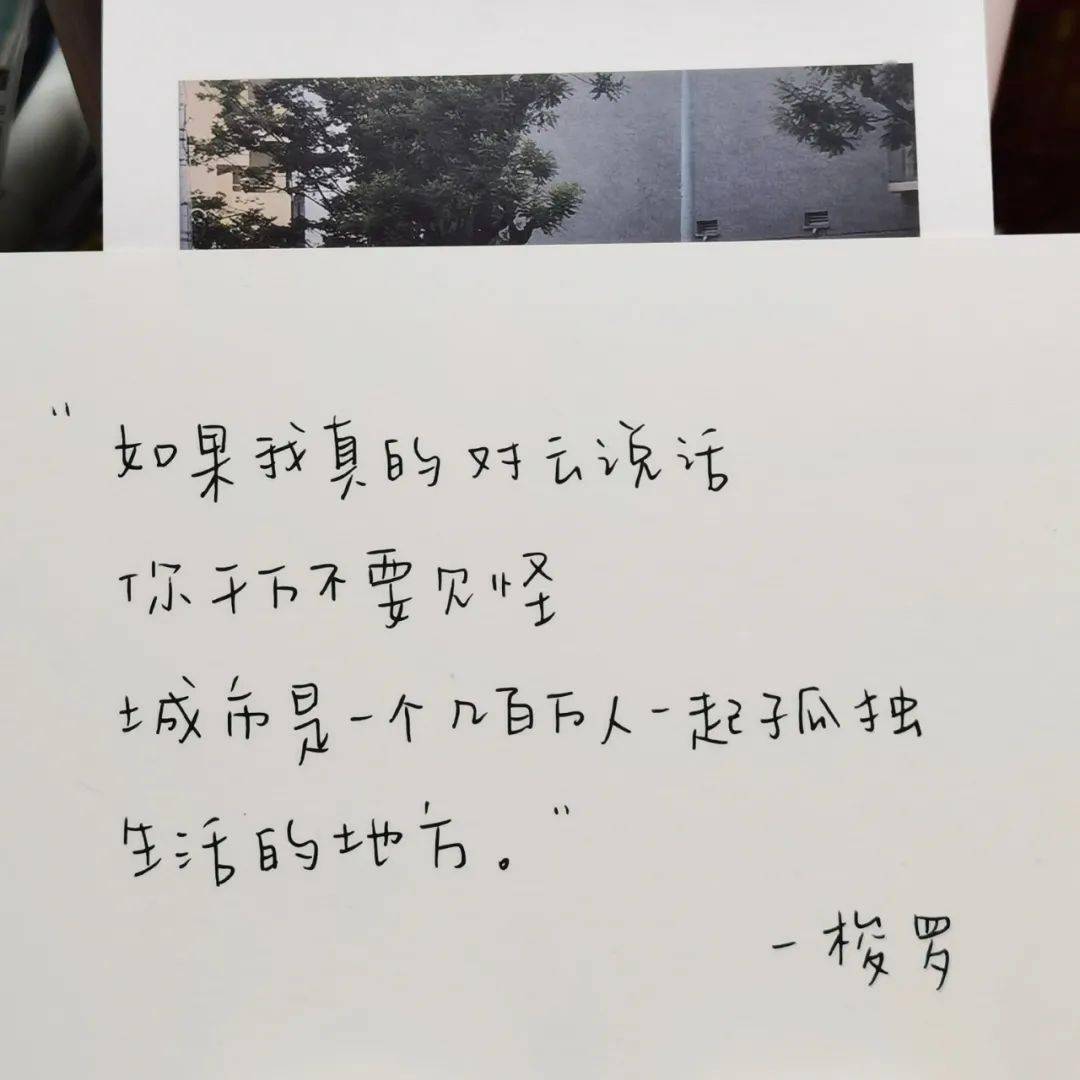 “如果我真的对云说话
你千万不要见怪
城市是一个几百万人一起孤独
生活的地方。”
-梭罗